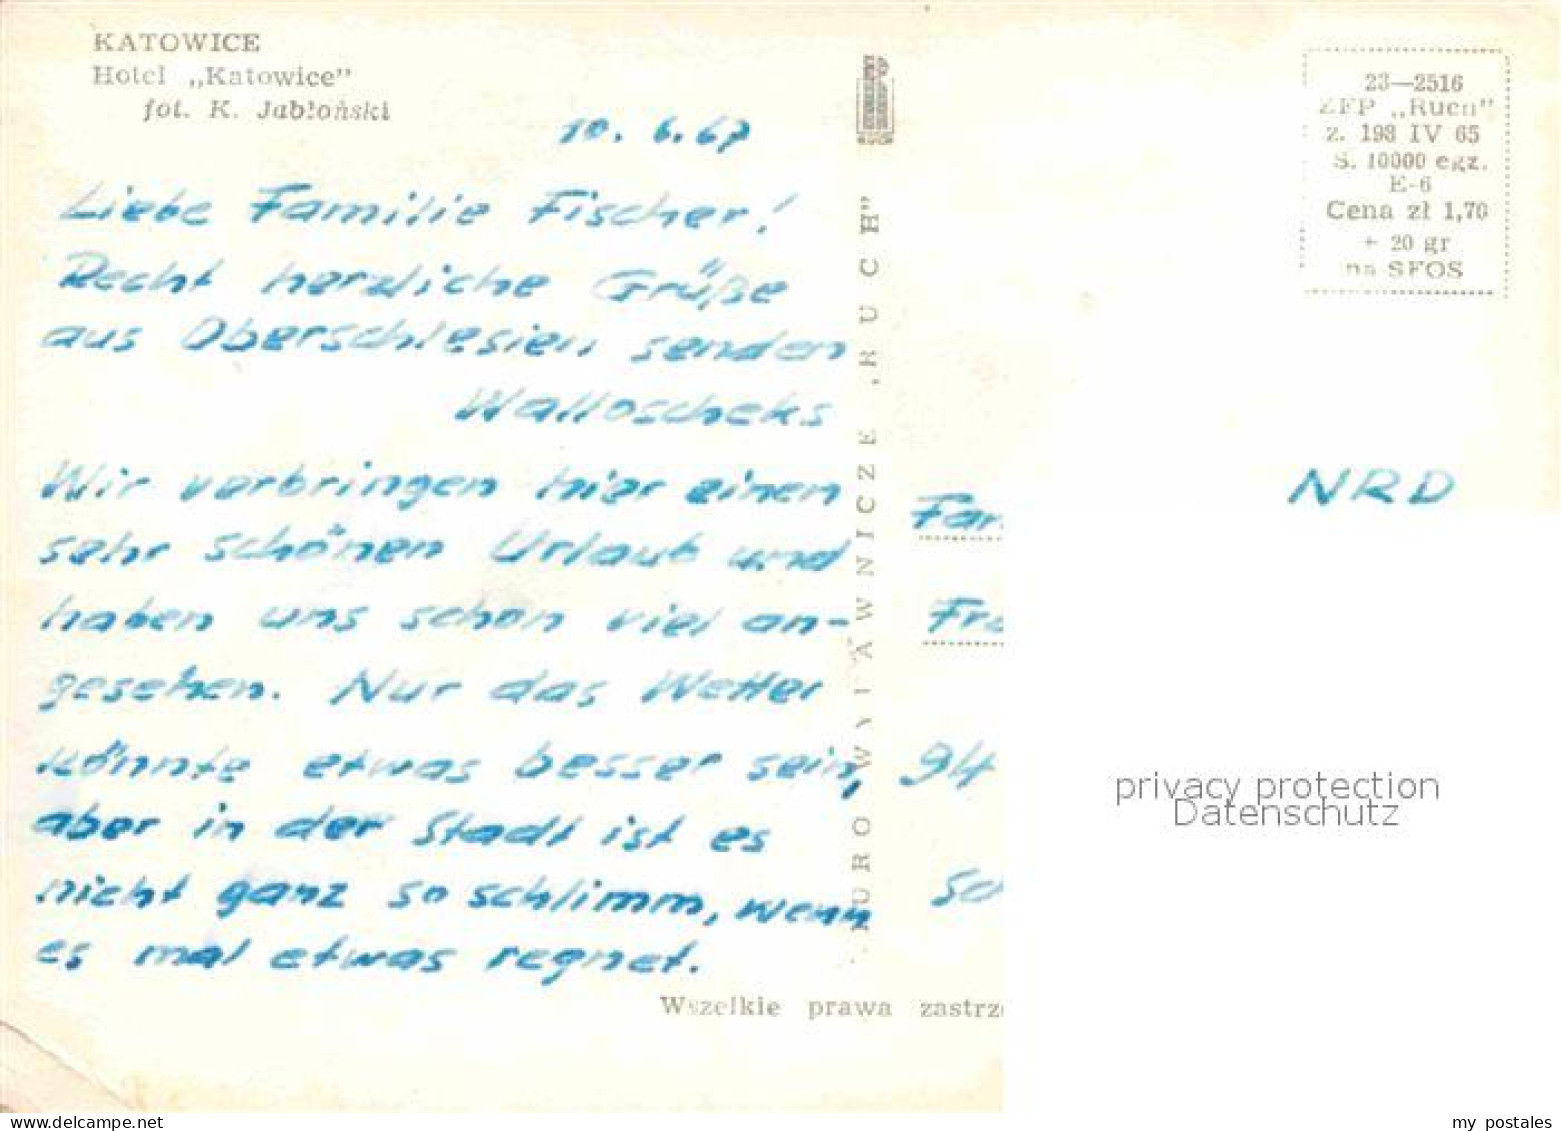 KATOWICE
Hotel „Katowice”
fot. K. Jabłoński
10. 6. 67
Liebe Familie Fischer!
Recht herzliche Grüße
aus Oberschlesien senden
Walloscheks
Wir verbringen hier einen
sehr schönen Urlaub und
haben uns schon viel an-
gesehen. Nur das Wetter
könnte etwas besser sein,
aber in der Stadt ist es
nicht ganz so schlimm, wenn
es mal etwas regnet.
BIURO WYDAWNICZE „RUCH”
Wszelkie prawa zastrze
23—2516
ZFP „Ruch”
z. 198 IV 65
S. 10000 egz.
E-6
Cena zł 1,70
+ 20 gr
na SFOS
NRD
Fam
Fra
94
privacy protection
Datenschutz
my postales